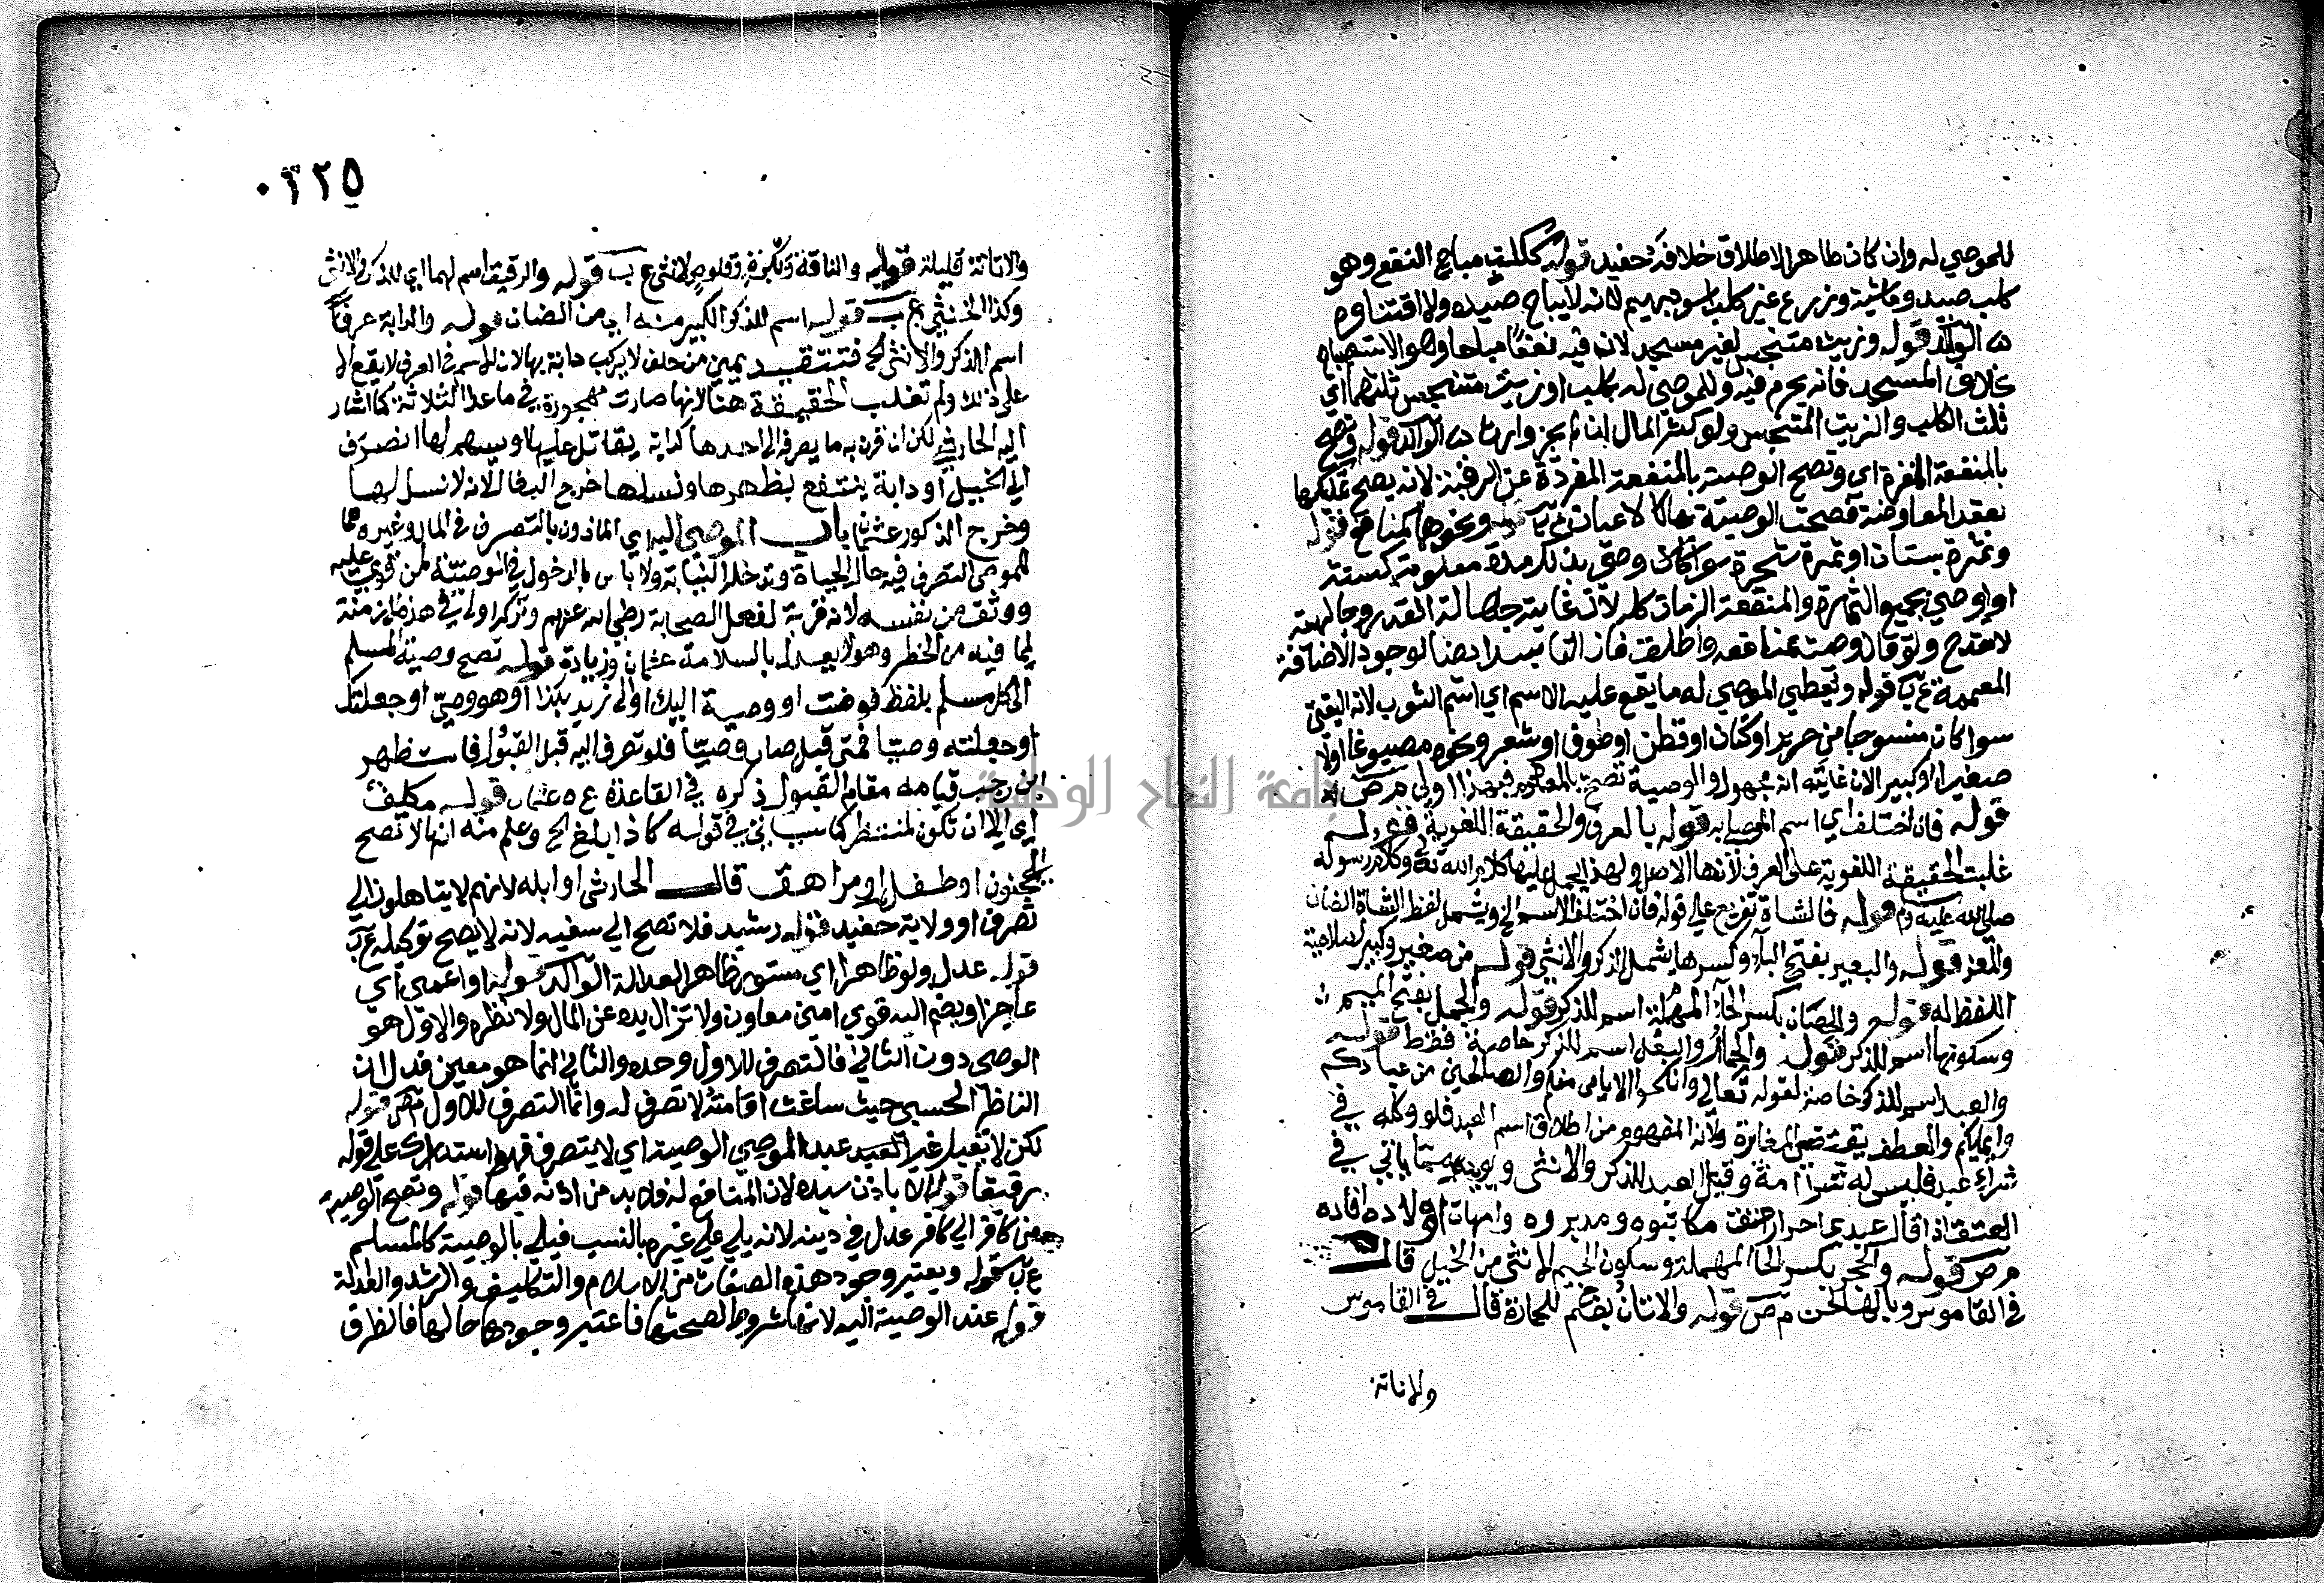 للموصي له وان كان ظاهر الاطلاق خلافه حفيد قوله ككلب مباح النفع وهو
كلب صيد وماشية وزرع غير كلب اسود بهيم لانه لا يباح صيده ولا اقتناوه
م ص الوالد قوله وزيت متنجس لغير مسجد لانه فيه نفعا مباحا وهو الاستصباح
خلاف المسجد فانه يحرم فيه وللموصي له بكلب او زيت متنجس ثلثهما اي
ثلث الكلب والزيت المتنجس ولو كثر المال ان لم يجز وارث الوالد قوله وتصح
بالمنفعة المفردة اي وتصح الوصية بالمنفعة المفردة عن الرقبة لانه يصح تمليكها
بعقد المعاوضة فصحت الوصية بها كالاعيان ع ب قوله ونحوها كمنافع قوله
وثمرة بستان او ثمرة شجرة سواء كان وصى بذلك مدة معلومة كسنة
او اوصى بجميع الثمرة والمنفعة الزمان كله لان غايته جهالة القدر وجهالته
لا تقدح ولو قال وصيت بمنافعه واطلق فاز التابيد ايضا لوجود الاضافة
المعممة ع ب قوله ويعطى الموصى له ما يقع عليه الاسم اي اسم الثوب لانه اليقين
سوا كان منسوجا من حرير او كتان او قطن او صوف او شعر ونحوه مصبوغا اولا
صغيرا او كبيرا لان غايته انه مجهول والوصية تصح بالمعدوم فبهذا اولى م ص
قوله فان اختلف اي اسم الموصى به قوله بالعرف والحقيقة اللغوية قوله
غلبت الحقيقة اللغوية على العرف لانها الاصل ولهذا يحمل عليها كلام الله تعالى وكلام رسوله
صلى الله عليه وسلم قوله فالشاة تفريع على قوله فان اختلف الاسم الخ ويشمل لفظ الشاة الضان
والمعز قوله والبعير بفتح الباء وكسرها يشمل الذكر والانثى قوله من صغير وكبير لصلاحية
اللفظ له قوله والحصان بكسر الحاء المهملة اسم للذكر قوله والجمل بفتح الميم
وسكونها اسم للذكر قوله والحمار والبغل اسم للذكر خاصة فقط قوله
والعبد اسم للذكر خاصة لقوله تعالى وانكحوا الايامى منكم والصالحين من عبادكم
وامائكم والعطف يقتضي المغايرة ولانه المفهوم من اطلاق اسم العبد فلو وكله في
شراء عبد فليس له شرا امة وقيل العبد للذكر والانثى ويويده ما ياتي في
العتق اذا قال عبيدي احرار عتق مكاتبوه ومدبروه وامهات اولاده افاده
م ص قوله والحجر بكسر الحا المهملة وسكون الجيم الانثى من الخيل قال
في القاموس وبالهاء لحن م ص قوله والاتان بفتح للحمارة قال في القاموس
والاتانة
٣٢٥
والاتانة قليلة قوله والناقة وبكرة وقلوص لانثى ع ب قوله والرقيق اسم لهما اي للذكر والانثى
وكذا الخنثى ع ب قوله اسم للذكر الكبير منه اي من الضان قوله والدابة عرفا
اسم الذكر والانثى الخ فتتقيد يمين من حلف لا يركب دابة بها لان الاسم في العرف لا يقع الا
على ذلك ولم تغلب الحقيقة هنا لانها صارت مهجورة في ما عدا الثلاثة كما اشار
اليه الحارثي لكن ان قرن به ما يصرفه الى احدها كدابة يقاتل عليها او يسهم لها انصرف
الى الخيل او دابة ينتفع بظهرها ونسلها خرج البغال لانه لا نسل لها
وخرج الذكور عثمان باب الموصى اليه اي الماذون بالتصرف في المال وغيره مما
للموصي التصرف فيه حال الحياة وتدخله النيابة ولا باس بالدخول في الوصية لمن قوي عليه
ووثق من نفسه لانه قربة لفعل الصحابة رضي الله عنهم وتركه اولى في هذه الازمنة
لما فيه من الخطر وهو لا يعدل بالسلامة عثمان وزيادة قوله تصح وصية المسلم
الى كل مسلم بلفظ فوضت او وصية اليك او الى زيد بكذا او هو وصيي او جعلتك
او جعلته وصيا فمتى قبل صار وصيا فلو تصرف اليه قبل القبول فاستظهر
ابن رجب قيامه مقام القبول ذكره في القاعدة ع ه عثمان قوله مكلف
اي الا ان تكون لمنتظر كما سيأتي في قوله كاذا بلغ الخ وعلم منه انها لا تصح
لمجنون او طفل او مراهق قال الحارثي او ابله لانهم لا يتاهلون الى
تصرف او ولاية حفيد قوله رشيد فلا تصح الى سفيه لانه لا يصح توكيله ع ب
قوله عدل ولو ظاهرا اي مستور ظاهر العدالة الوالد قوله او اعمى اي
عاجزا ويضم اليه قوي امين معاون ولا تزال يده عن المال ولا نظره والاول هو
الوصي دون الثاني فالتصرف للاول وحده والثاني انما هو معين فدل ان
الناظر الحسبي حيث ساغت اقامته لا تصرف له وانما التصرف للاول م ص قوله
لكن لا يقبل غير العبد عبد الموصي الوصية اي لا يتصرف فهو استدراك على قوله
رقيقا قوله الا باذن سيده لان المنافع له فلا بد من اذنه فيها قوله وتصح الوصية
من كافر الى كافر عدل في دينه لانه يلي على غيره بالنسب فيلي بالوصية كالمسلم
ع ب قوله ويعتبر وجود هذه الصفات من الاسلام والتكليف والرشد والعدالة
قوله عند الوصية اليه لانها شروط لصحتها فاعتبر وجودها حالها فالطرق